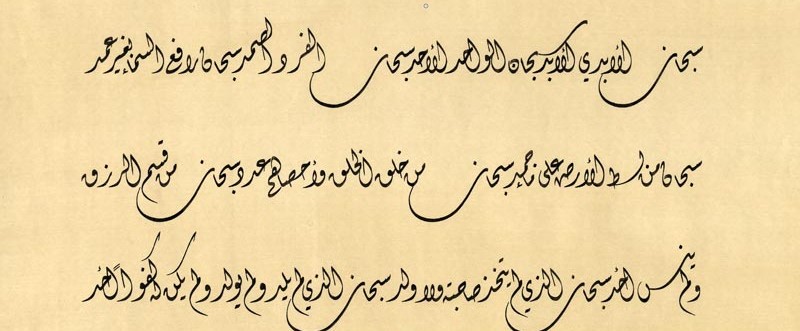 سبحان الأبدي الأبد سبحان الواحد الأحد سبحان الفرد الصمد سبحان رافع السماء بغير عمد
سبحان من بسط الأرض على ماء جمد سبحان من خلق الخلق وأحصاهم عدد سبحان من قسم الرزق
ولم ينس أحد سبحان الذي لم يتخذ صاحبة ولا ولد سبحان الذي لم يلد ولم يولد ولم يكن له كفواً أحد